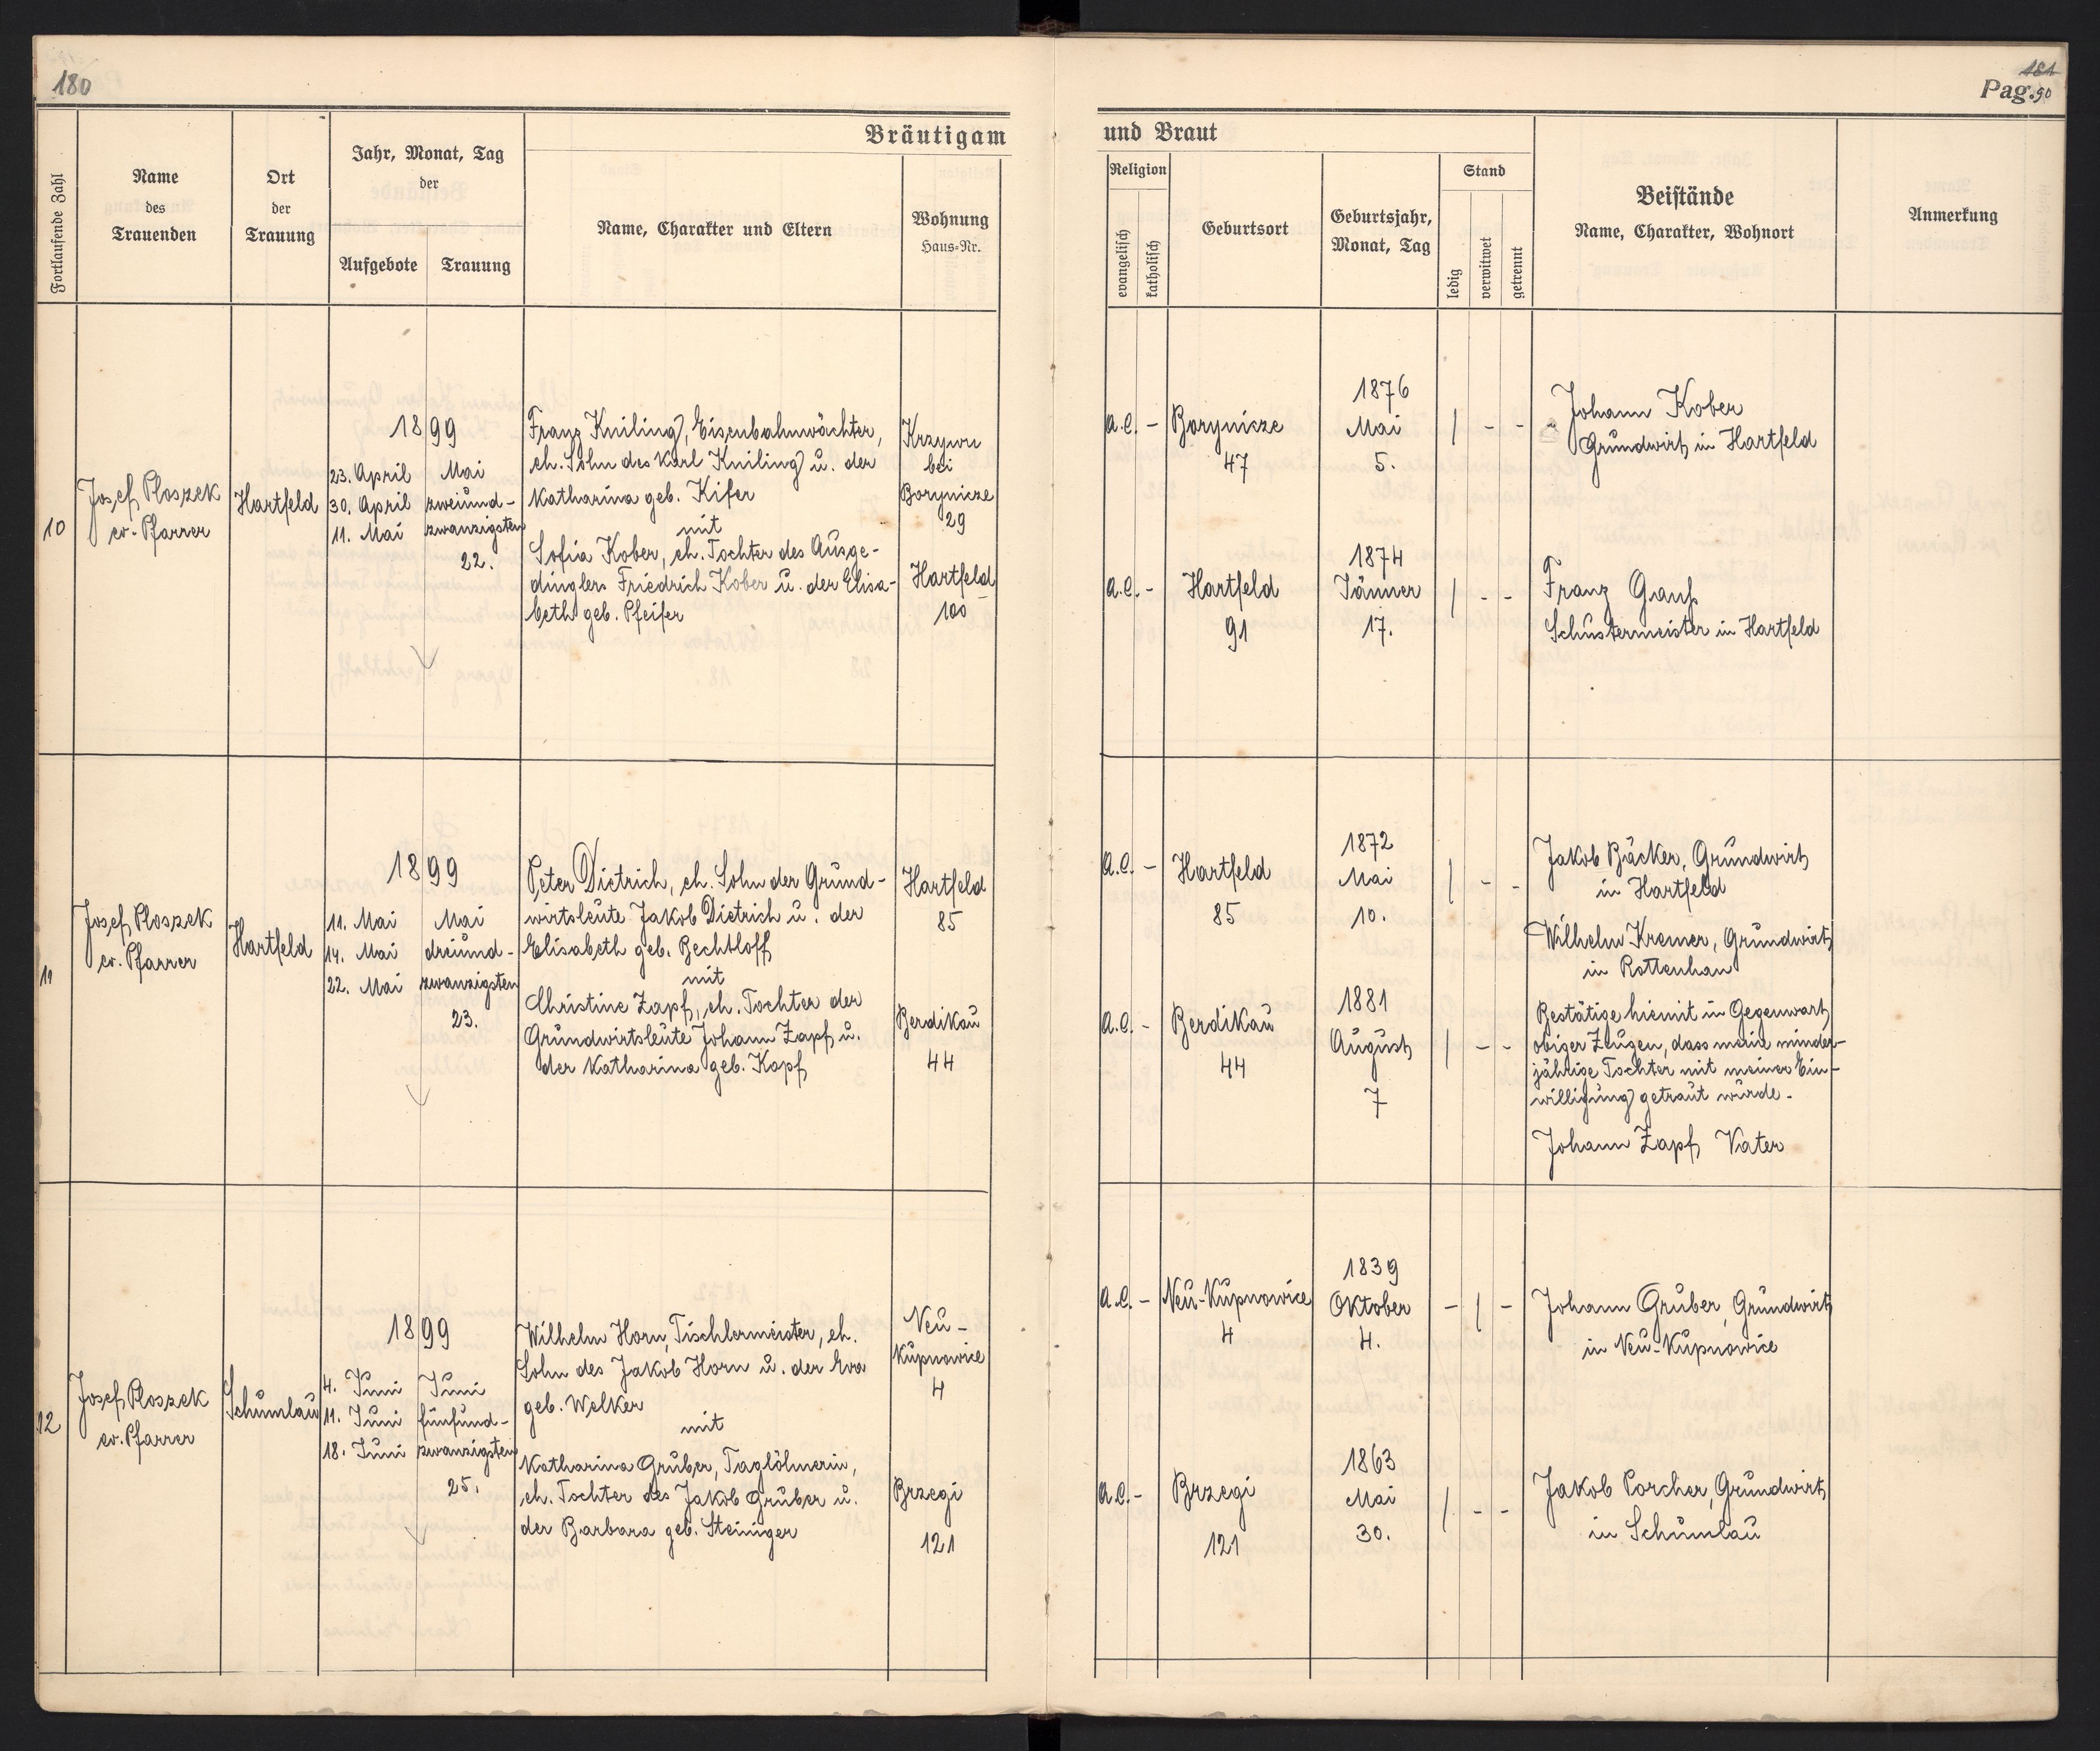 180
181
Pag. 90
Bräutigam
und Braut
Fortlaufende Zahl
Name
des
Trauenden
Ort
der
Trauung
Jahr, Monat, Tag
der
Aufgebote
Trauung
Name, Charakter und Eltern
Wohnung
Haus-Nr.
Religion
evangelisch
katholisch
Geburtsort
Geburtsjahr,
Monat, Tag
Stand
ledig
verwitwet
getrennt
Beistände
Name, Charakter, Wohnort
Anmerkung
10
Josef Ploszek
ev. Pfarrer
Hartfeld
1899
23. April
30. April
11. Mai
Mai
zweiund-
zwanzigsten
22.
Franz Kniling, Eisenbahnwächter,
eh. Sohn des Karl Kniling u. der
Katharina geb. Kifer
mit
Sofia Kober, eh. Tochter des Ausge-
dinglers Friedrich Kober u. der Elisa-
beth geb. Pfeifer
Krzywu
bei
Borynicze
29
Hartfeld
100
a.c. -
Borynicze
47
1876
Mai
5.
/ - -
Johann Kober
Grundwirt in Hartfeld
a.c. -
Hartfeld
91
1874
Jänner
17.
/ - -
Franz Gauß
Schustermeister in Hartfeld
11
Josef Ploszek
ev. Pfarrer
Hartfeld
1899
11. Mai
14. Mai
22. Mai
Mai
dreiund-
zwanzigsten
23.
Peter Dietrich, eh. Sohn der Grund-
wirtsleute Jakob Dietrich u. der
Elisabeth geb. Bechtloff
mit
Christine Zapf, eh. Tochter der
Grundwirtsleute Johann Zapf u.
der Katharina geb. Kopf
Hartfeld
85
Berdikau
44
a.c. -
Hartfeld
85
1872
Mai
10.
/ - -
Jakob Bäcker, Grundwirt
in Hartfeld
Wilhelm Kremer, Grundwirt
in Rottenhan
a.c. -
Berdikau
44
1881
August
7
/ - -
Bestätige hiemit in Gegenwart
obiger Zeugen, dass meine minder-
jährige Tochter mit meiner Ein-
willigung getraut wurde.
Johann Zapf Vater
12
Josef Ploszek
ev. Pfarrer
Schumlau
1899
4. Juni
11. Juni
18. Juni
Juni
fünfund-
zwanzigsten
25.
Wilhelm Horn, Tischlermeister, eh.
Sohn des Jakob Horn u. der Eva
geb. Welker
mit
Katharina Gruber, Taglöhnerin,
eh. Tochter des Jakob Gruber u.
der Barbara geb. Steiniger
Neu-
Kupnowice
4
Brzegi
121
a.c. -
Neu-Kupnowice
4
1839
Oktober
4.
- / -
Johann Gruber, Grundwirt
in Neu-Kupnowice
a.c. -
Brzegi
121
1863
Mai
30.
/ - -
Jakob Porcher, Grundwirt
in Schumlau